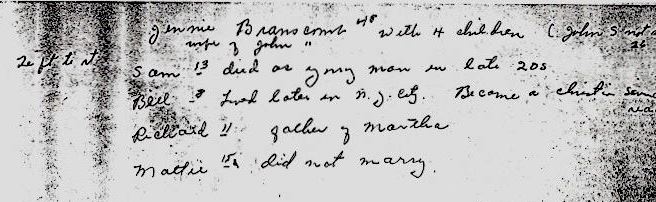 Jennie Branscomb 48 with 4 children (John S not a
wife of John "
26
Le ft to rt
Sam 13 died as young man in late 20s
Bill 8 Lived later in N. J. City. Became a christian
Richard 11 father of Martha
Mattie 15 did not marry.